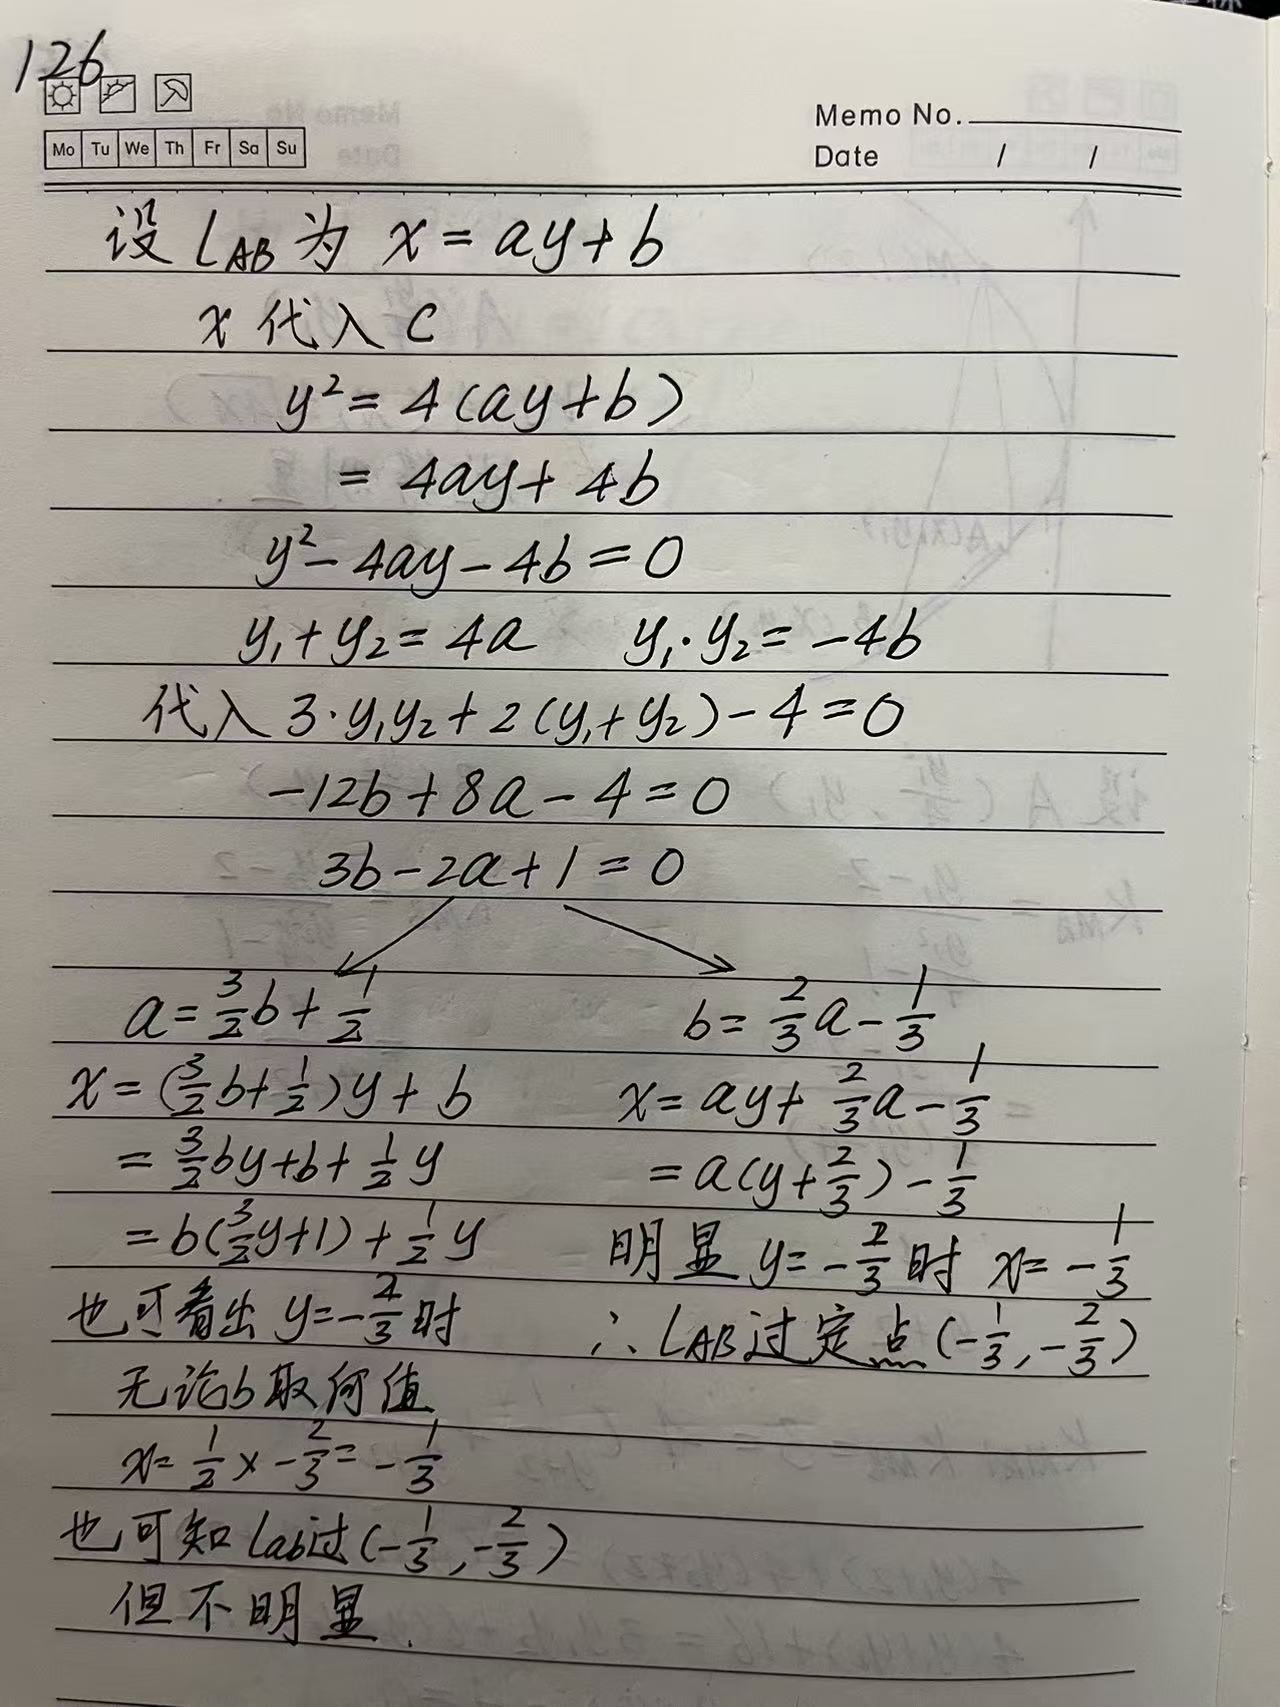 126
Mo Tu We Th Fr Sa Su
Memo No.
Date / /
设 l_AB 为 x = ay + b
x 代入 C
y² = 4(ay + b)
= 4ay + 4b
y² - 4ay - 4b = 0
y₁ + y₂ = 4a y₁·y₂ = -4b
代入 3·y₁y₂ + 2(y₁ + y₂) - 4 = 0
-12b + 8a - 4 = 0
3b - 2a + 1 = 0
a = 3/2 b + 1/2
x = (3/2 b + 1/2)y + b
= 3/2 by + b + 1/2 y
= b(3/2 y + 1) + 1/2 y
也可看出 y = -2/3 时
无论b取何值
x = 1/2 × -2/3 = -1/3
也可知 l_ab过 (-1/3, -2/3)
但不明显.
b = 2/3 a - 1/3
x = ay + 2/3 a - 1/3
= a(y + 2/3) - 1/3
明显 y = -2/3 时 x = -1/3
∴ l_AB过定点 (-1/3, -2/3)